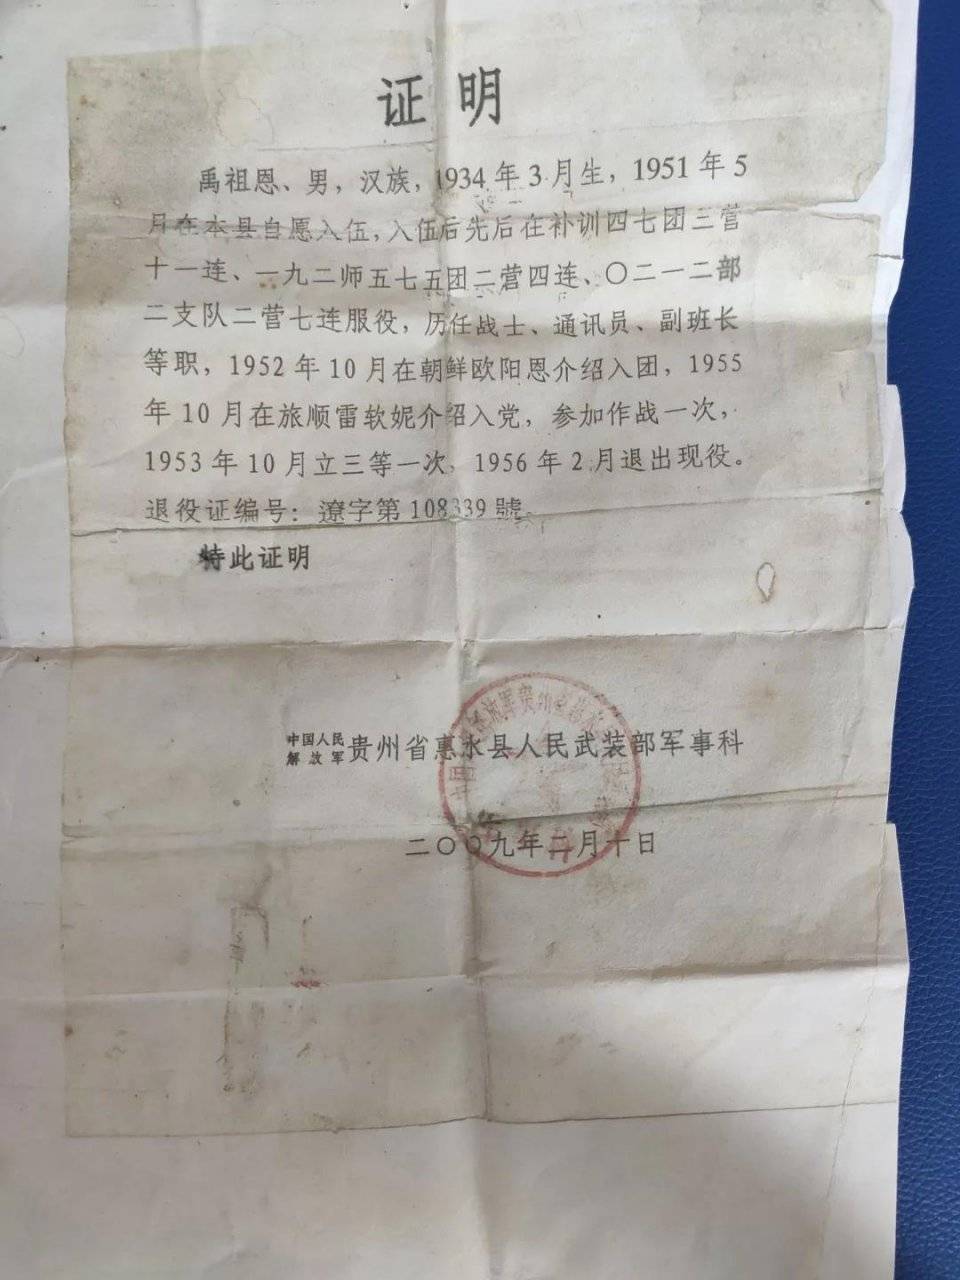 证明
禹祖恩、男，汉族，1934年3月生，1951年5
月在本县自愿入伍，入伍后先后在补训四七团三营
十一连、一九二师五七五团二营四连、〇二一二部
二支队二营七连服役，历任战士、通讯员、副班长
等职，1952年10月在朝鲜欧阳恩介绍入团，1955
年10月在旅顺雷软妮介绍入党，参加作战一次，
1953年10月立三等一次，1956年2月退出现役。
退役证编号：遼字第108339號。
特此证明
中国人民解放军贵州省惠水县人民武装部军事科
二〇〇九年二月十日